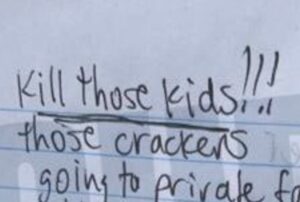 Kill those kids!!!
those crackers
going to private